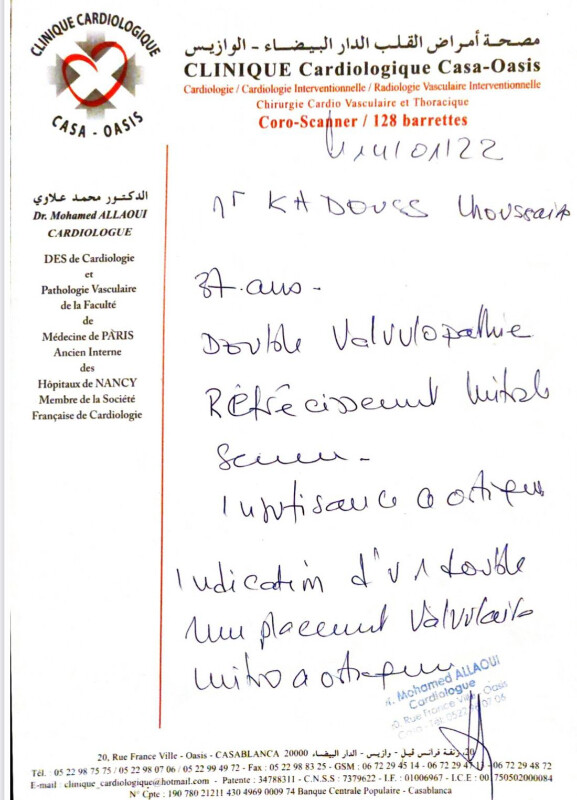 CLINIQUE CARDIOLOGIQUE
CASA - OASIS
مصحة أمراض القلب الدار البيضاء - الوازيس
CLINIQUE Cardiologique Casa-Oasis
Cardiologie / Cardiologie Interventionnelle / Radiologie Vasculaire Interventionnelle
Chirurgie Cardio Vasculaire et Thoracique
Coro-Scanner / 128 barrettes
14/01/22
الدكتور محمد علاوي
Dr. Mohamed ALLAOUI
CARDIOLOGUE
DES de Cardiologie
et
Pathologie Vasculaire
de la Faculté
de
Médecine de PARIS
Ancien Interne
des
Hôpitaux de NANCY
Membre de la Société
Française de Cardiologie
Mr KADOUSS Lhoussain
37 ans -
Double Valvulopathie
Rétrécissement Mitral
Serré -
Insuffisance aortique
Indication d'un double
remplacement Valvulaire
mitro aortique
Mohamed ALLAOUI
Cardiologue
Rue France Ville - Oasis
20, زنقة فرانس فيل - وازيس - الدار البيضاء 20, Rue France Ville - Oasis - CASABLANCA 20000
Tél. : 05 22 98 75 75 / 05 22 98 07 06 / 05 22 99 49 72 - Fax : 05 22 98 83 25 - GSM : 06 72 29 45 14 - 06 72 29 47 13 - 06 72 29 48 72
E-mail : clinique_cardiologique@hotmail.com - Patente : 34788311 - C.N.S.S : 7379622 - I.F. : 01006967 - I.C.E : 001750502000084
N° Cpte : 190 780 21211 430 4969 0009 74 Banque Centrale Populaire - Casablanca